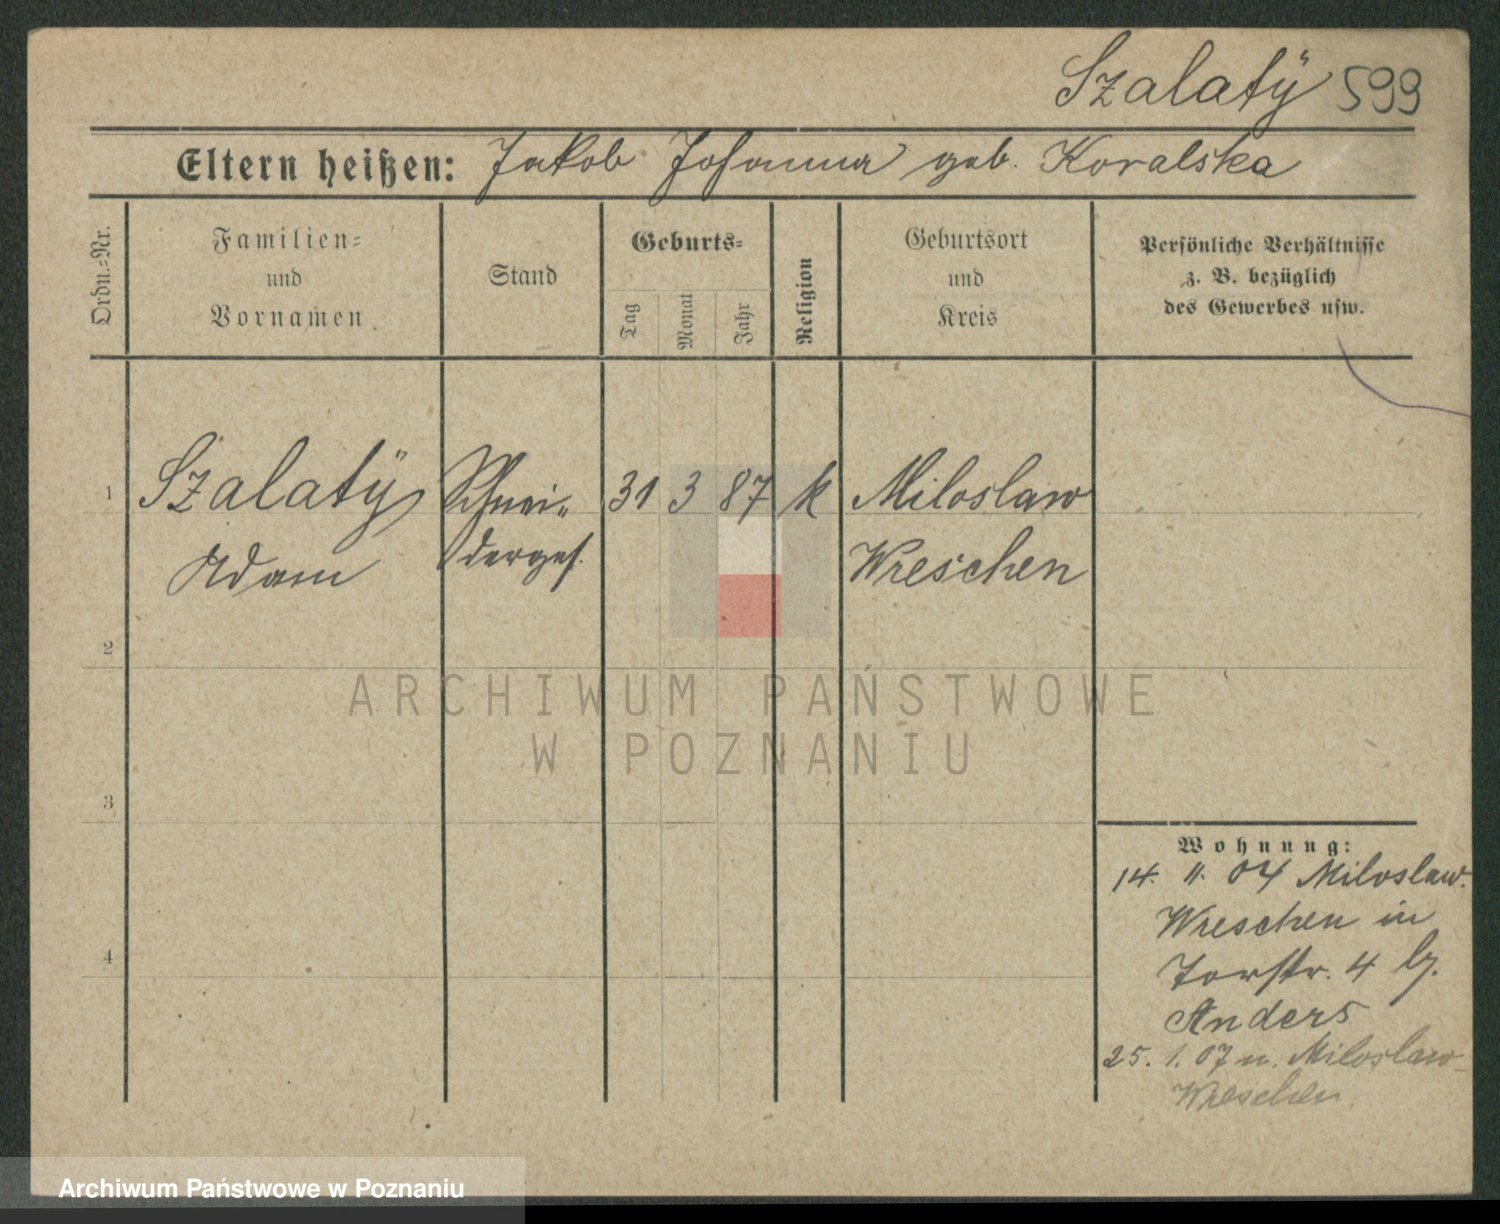 Szalatÿ 599
Eltern heißen: Jakob Johanna geb. Koralska
Ordn.-Nr.
Familien-
und
Vornamen
Stand
Geburts-
Tag
Monat
Jahr
Religion
Geburtsort
und
Kreis
Persönliche Verhältnisse
z. B. bezüglich
des Gewerbes usw.
1 Szalatÿ Schnei- 31 3 87 k Miloslaw
Adam derges. Wreschen
2
3
4
ARCHIWUM PAŃSTWOWE
W POZNANIU
Wohnung:
14. 11. 04 Miloslaw.
Wreschen in
Torstr. 4 b.
Anders
25. 1. 07 n. Miloslaw
Wreschen
Archiwum Państwowe w Poznaniu